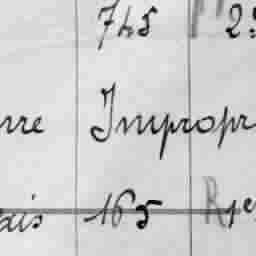 745 2
rre Impropr
ais 165 R 1e